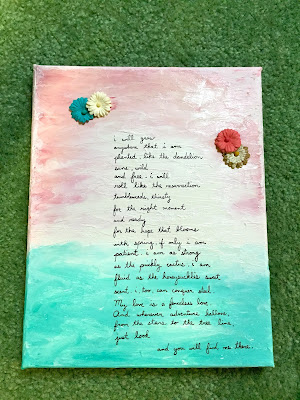 i will grow
anywhere that i am
planted. like the dandelion
sure, wild
and free. i will
roll like the resurrection
tumbleweeds, thirsty
for the right moment
and ready
for the hope that blooms
with spring, if only i am
patient. i am as strong
as the prickly cactus. i am
fluid as the honeysuckles sweet
scent. i, too, can conquer steel.
My love is a fenceless love.
And wherever adventure beckons,
from the stars to the tree line,
just look
and you will find me there.